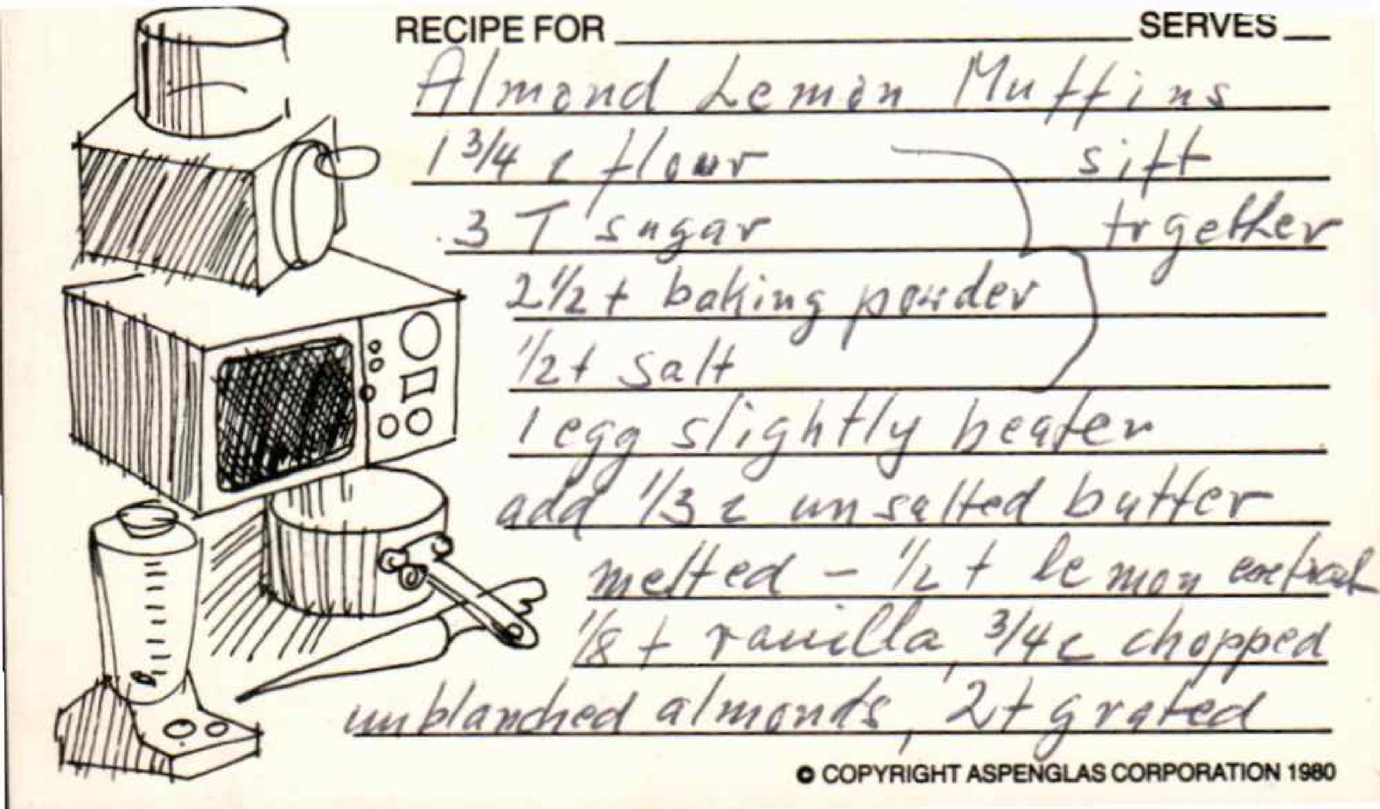 RECIPE FOR SERVES
Almond Lemon Muffins
1 3/4 c flour sift
3 T sugar together
2 1/2 t baking powder
1/2 t salt
1 egg slightly beaten
add 1/3 c unsalted butter
melted - 1/2 t lemon extract
1/8 t vanilla, 3/4 c chopped
unblanched almonds, 2 t grated
© COPYRIGHT ASPENGLAS CORPORATION 1980